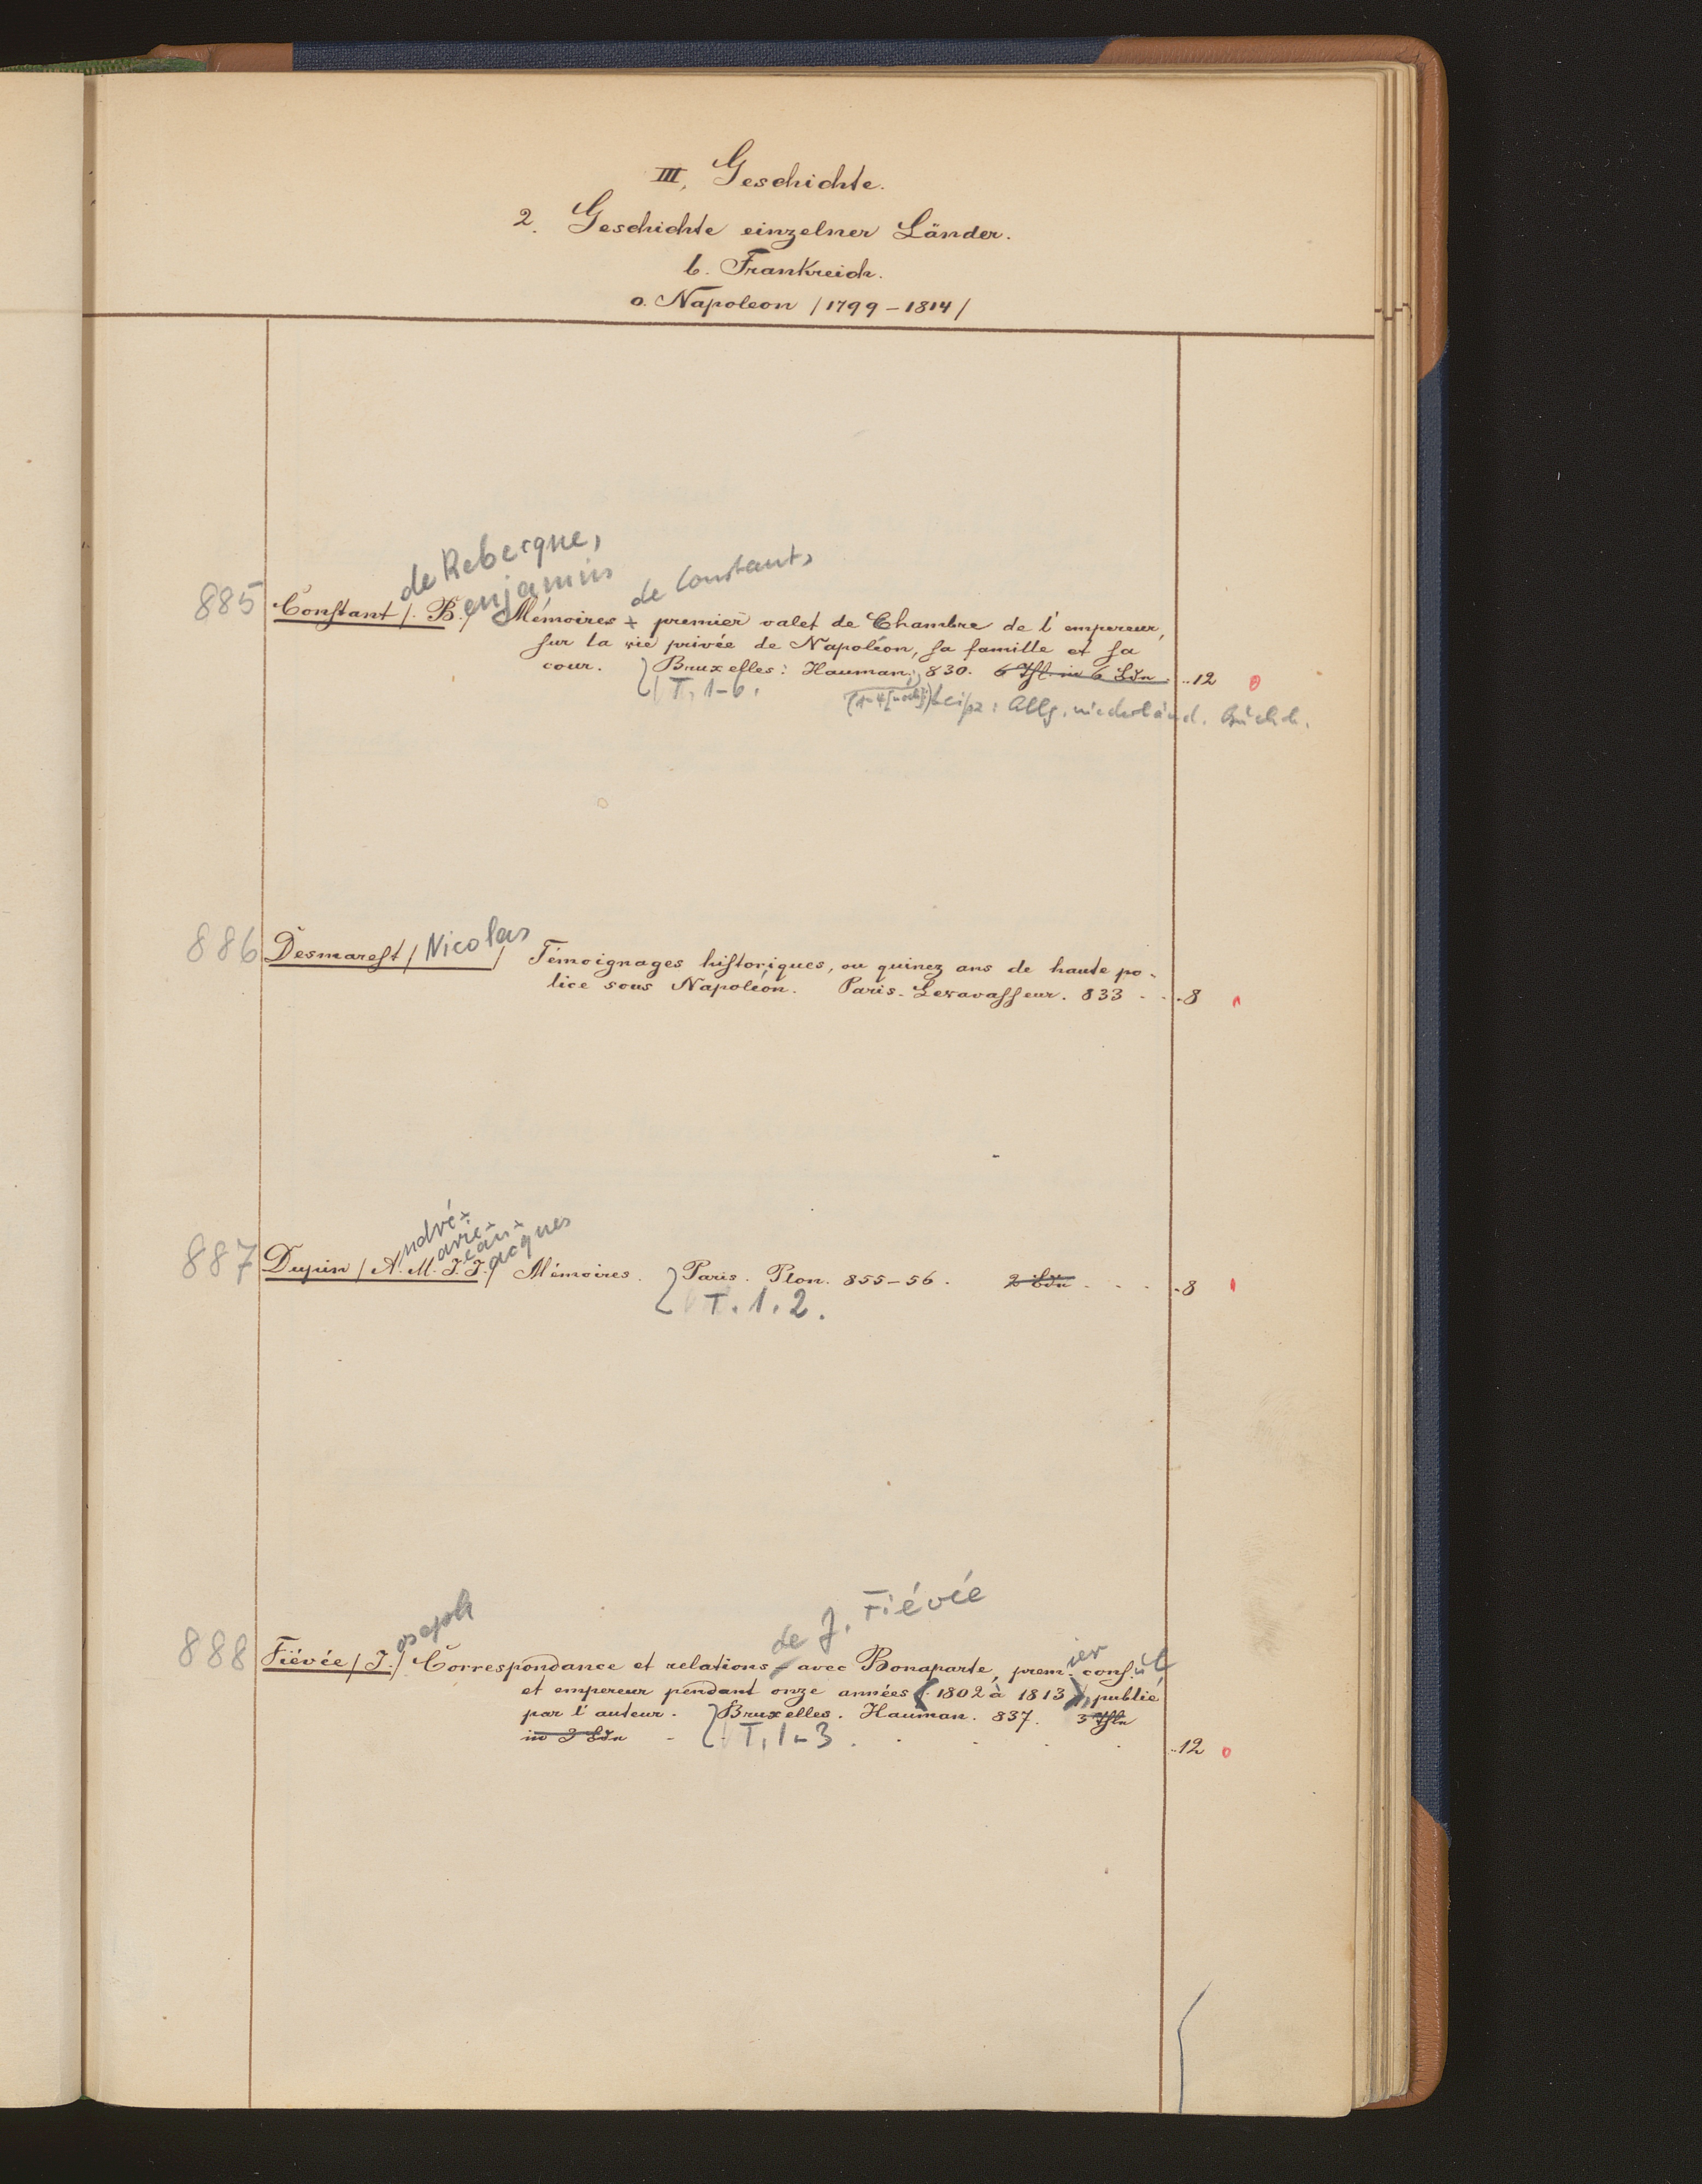 III, Geschichte.
2. Geschichte einzelner Länder.
b. Frankreich.
o. Napoleon /1799-1814/
de Rebecque,
enjamin de Constant,
885 Constant /. B./ Mémoires + premier valet de Chambre de l'empereur,
sur la vie privée de Napoléon, sa famille et sa
cour. Bruxelles: Hauman; 830. 6 Thl. in 6 Bdn. 12
T. 1-6. Leipz: Allg. niederländ. Buchh.
886 Desmarest / Nicolas / Témoignages historiques, ou quinez ans de haute po-
lice sous Napoléon. Paris. Levavasseur. 833 . . 8
ndré-
arie-
ean-
acques
887 Dupin / A. M. J. J. / Mémoires. Paris. Plon. 855-56. 2 Bdn . . . 8
T. 1. 2.
oseph de J. Fiévée
ier
888 Fiévée / J. / Correspondance et relations avec Bonaparte, prem. consul
et empereur pendant onze années (1802 à 1813), publié
par l'auteur. Bruxelles. Hauman. 837. 3 Thln
in 3 Bdn - T. 1-3 . . . . 12